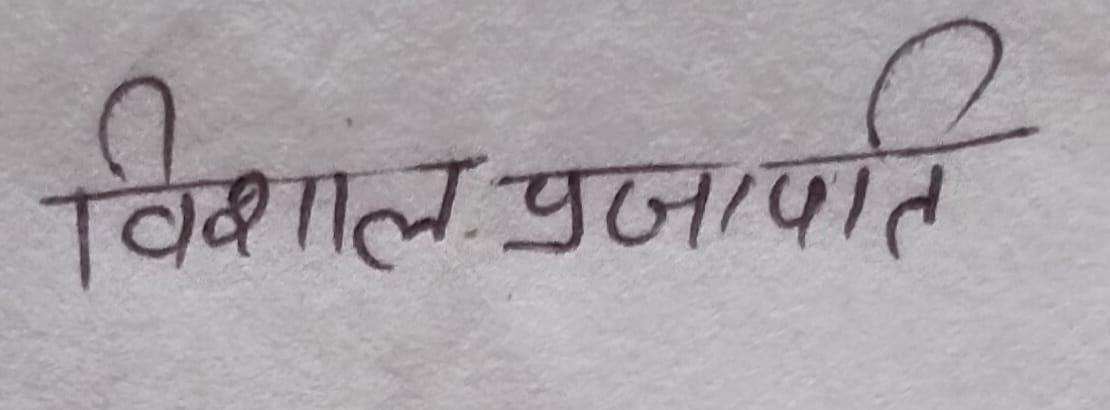 विशाल प्रजापति